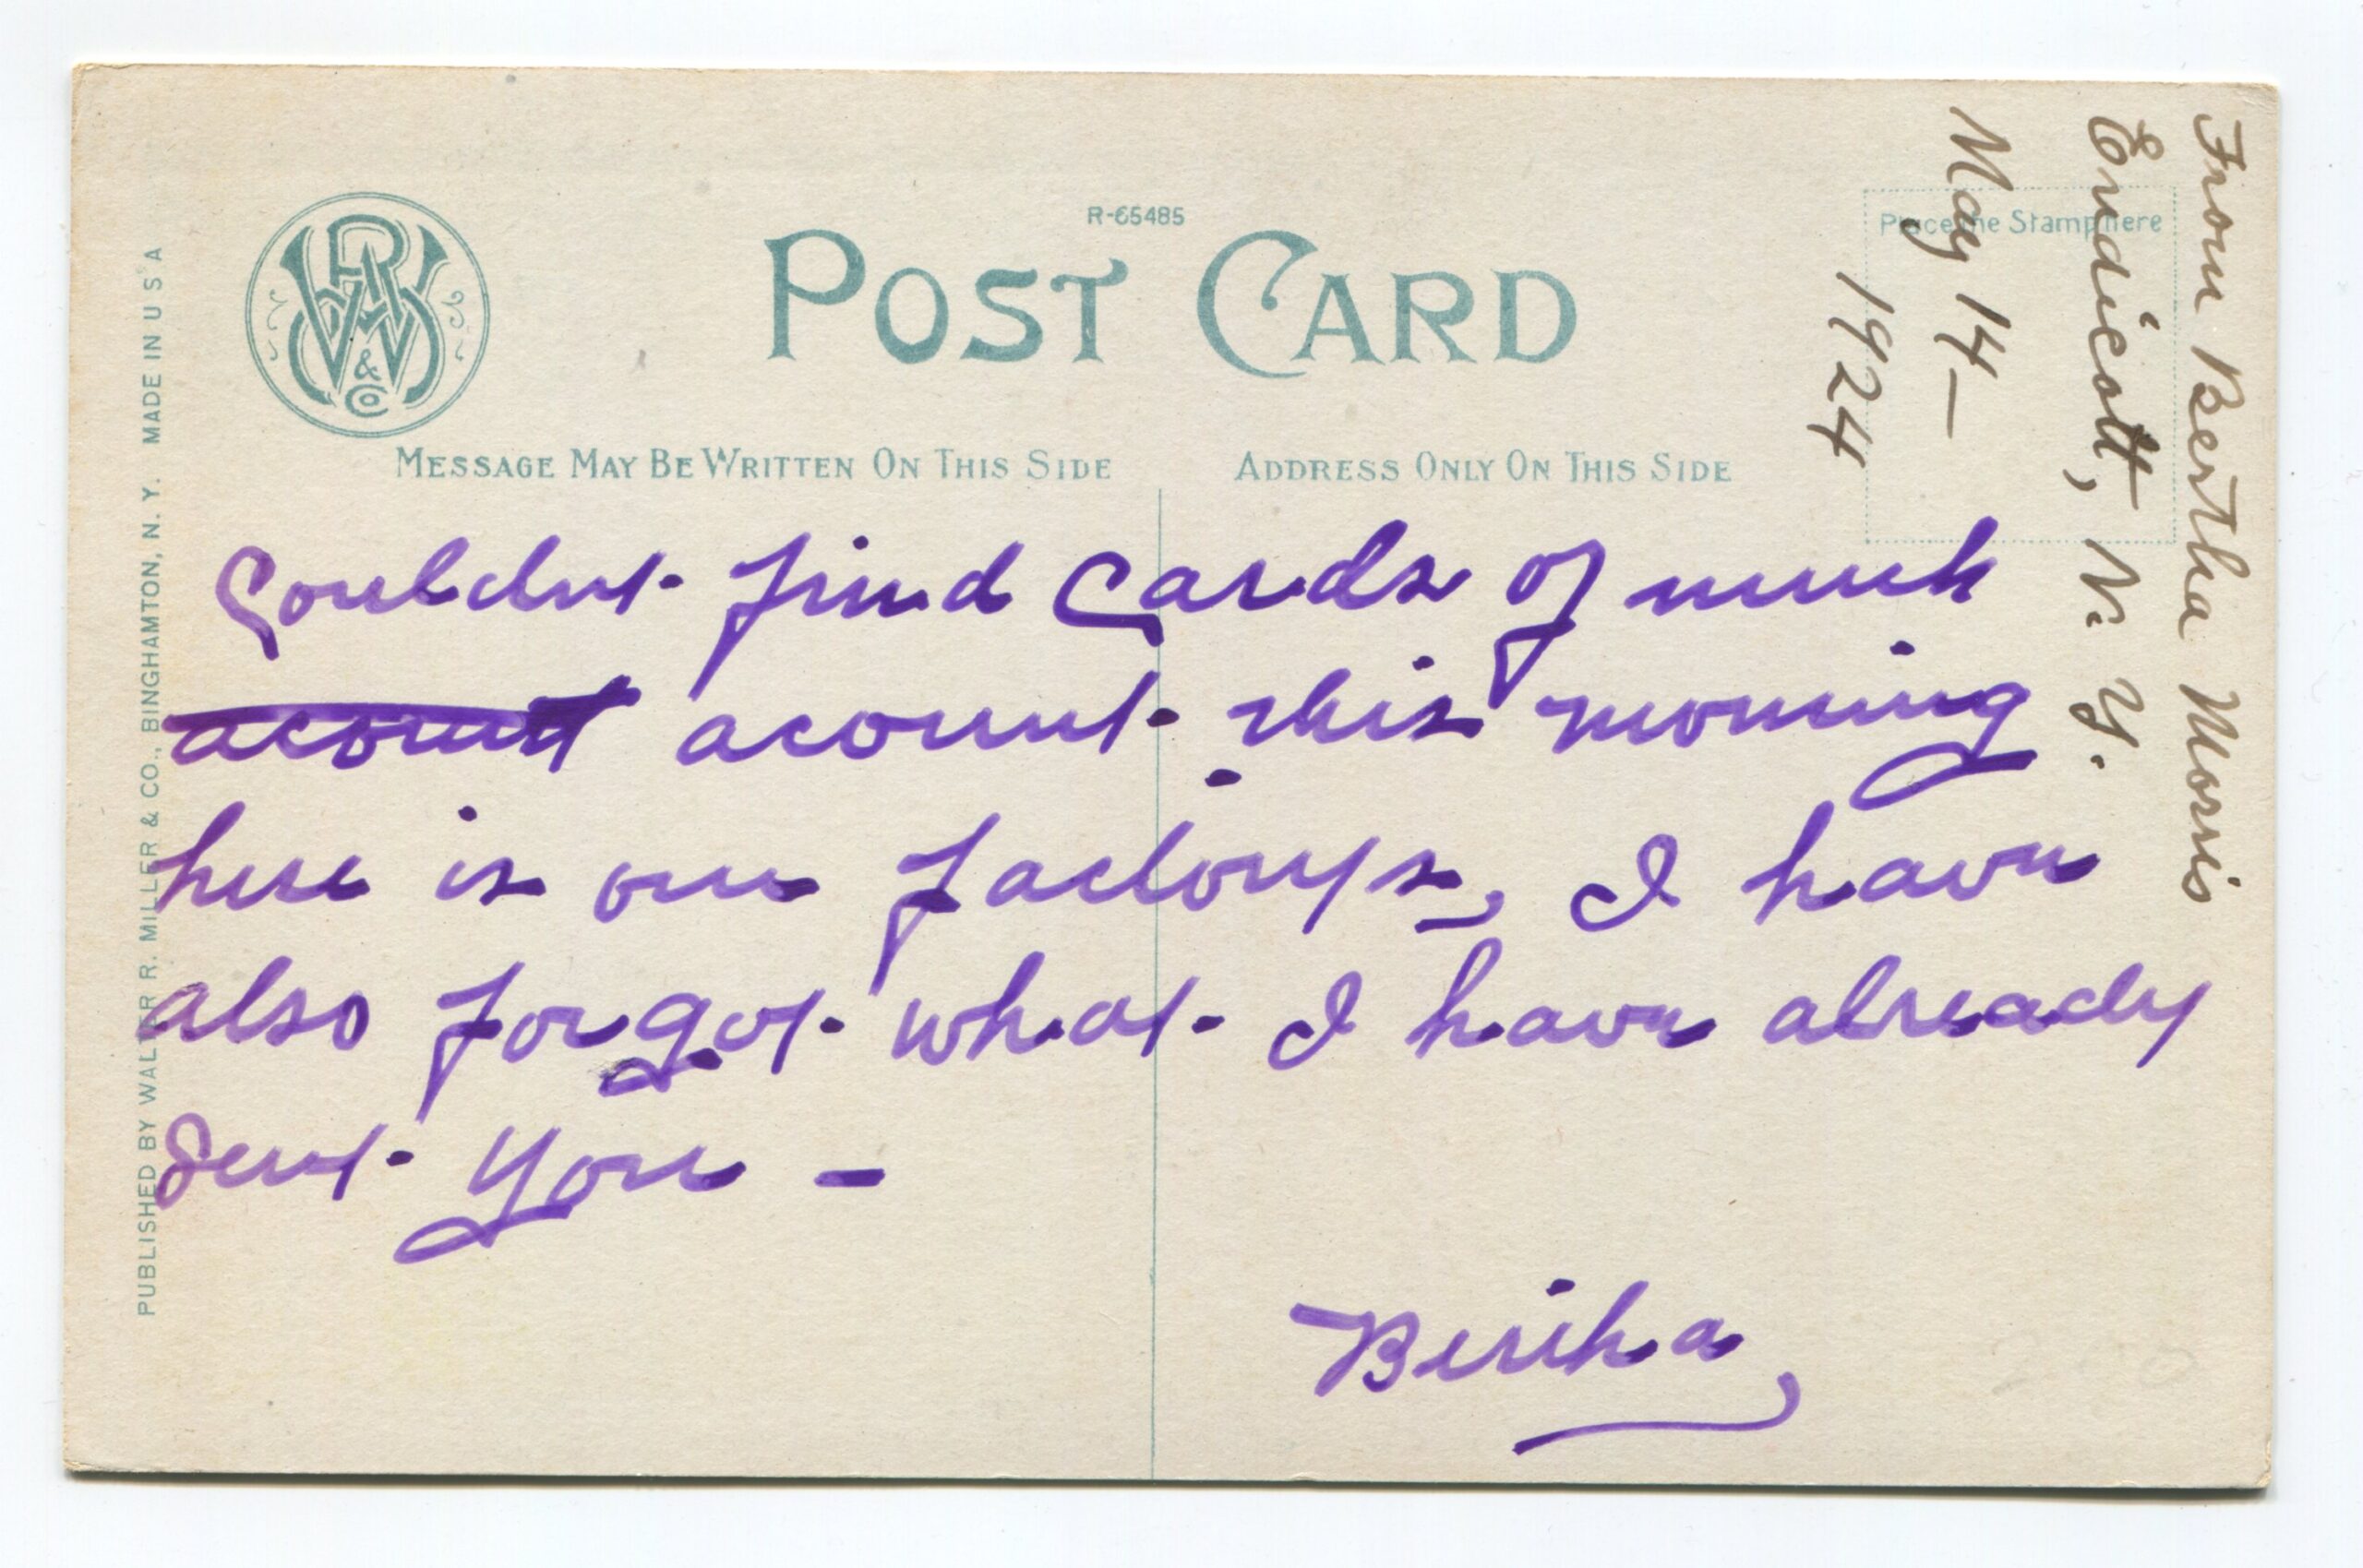 R-65485
POST CARD
WRM & Co
Place the Stamp Here
MESSAGE MAY BE WRITTEN ON THIS SIDE
ADDRESS ONLY ON THIS SIDE
PUBLISHED BY WALTER R. MILLER & CO., BINGHAMTON, N. Y. MADE IN U S A
From Bertha Morris
Endicott, N. Y.
May 14—
1924
Couldnt find Cards of much
acount acount this morning
here is our factorys, I have
also forgot what I have already
Sent you -
Bertha